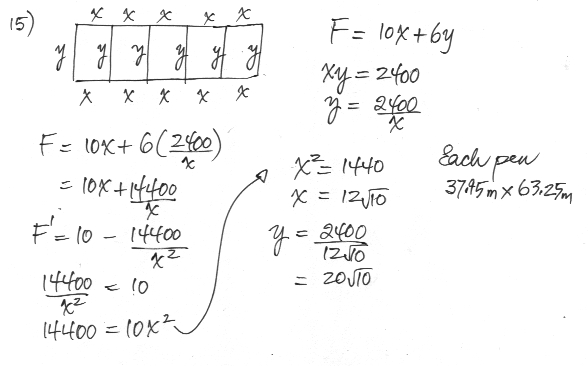 15)
x x x x x
y y y y y y
x x x x x
F = 10x + 6y
xy = 2400
y = 2400/x
F = 10x + 6(2400/x)
= 10x + 14400/x
F' = 10 - 14400/x²
14400/x² = 10
14400 = 10x²
x² = 1440
x = 12√10
y = 2400/12√10
= 20√10
Each pen
37.95m x 63.25m